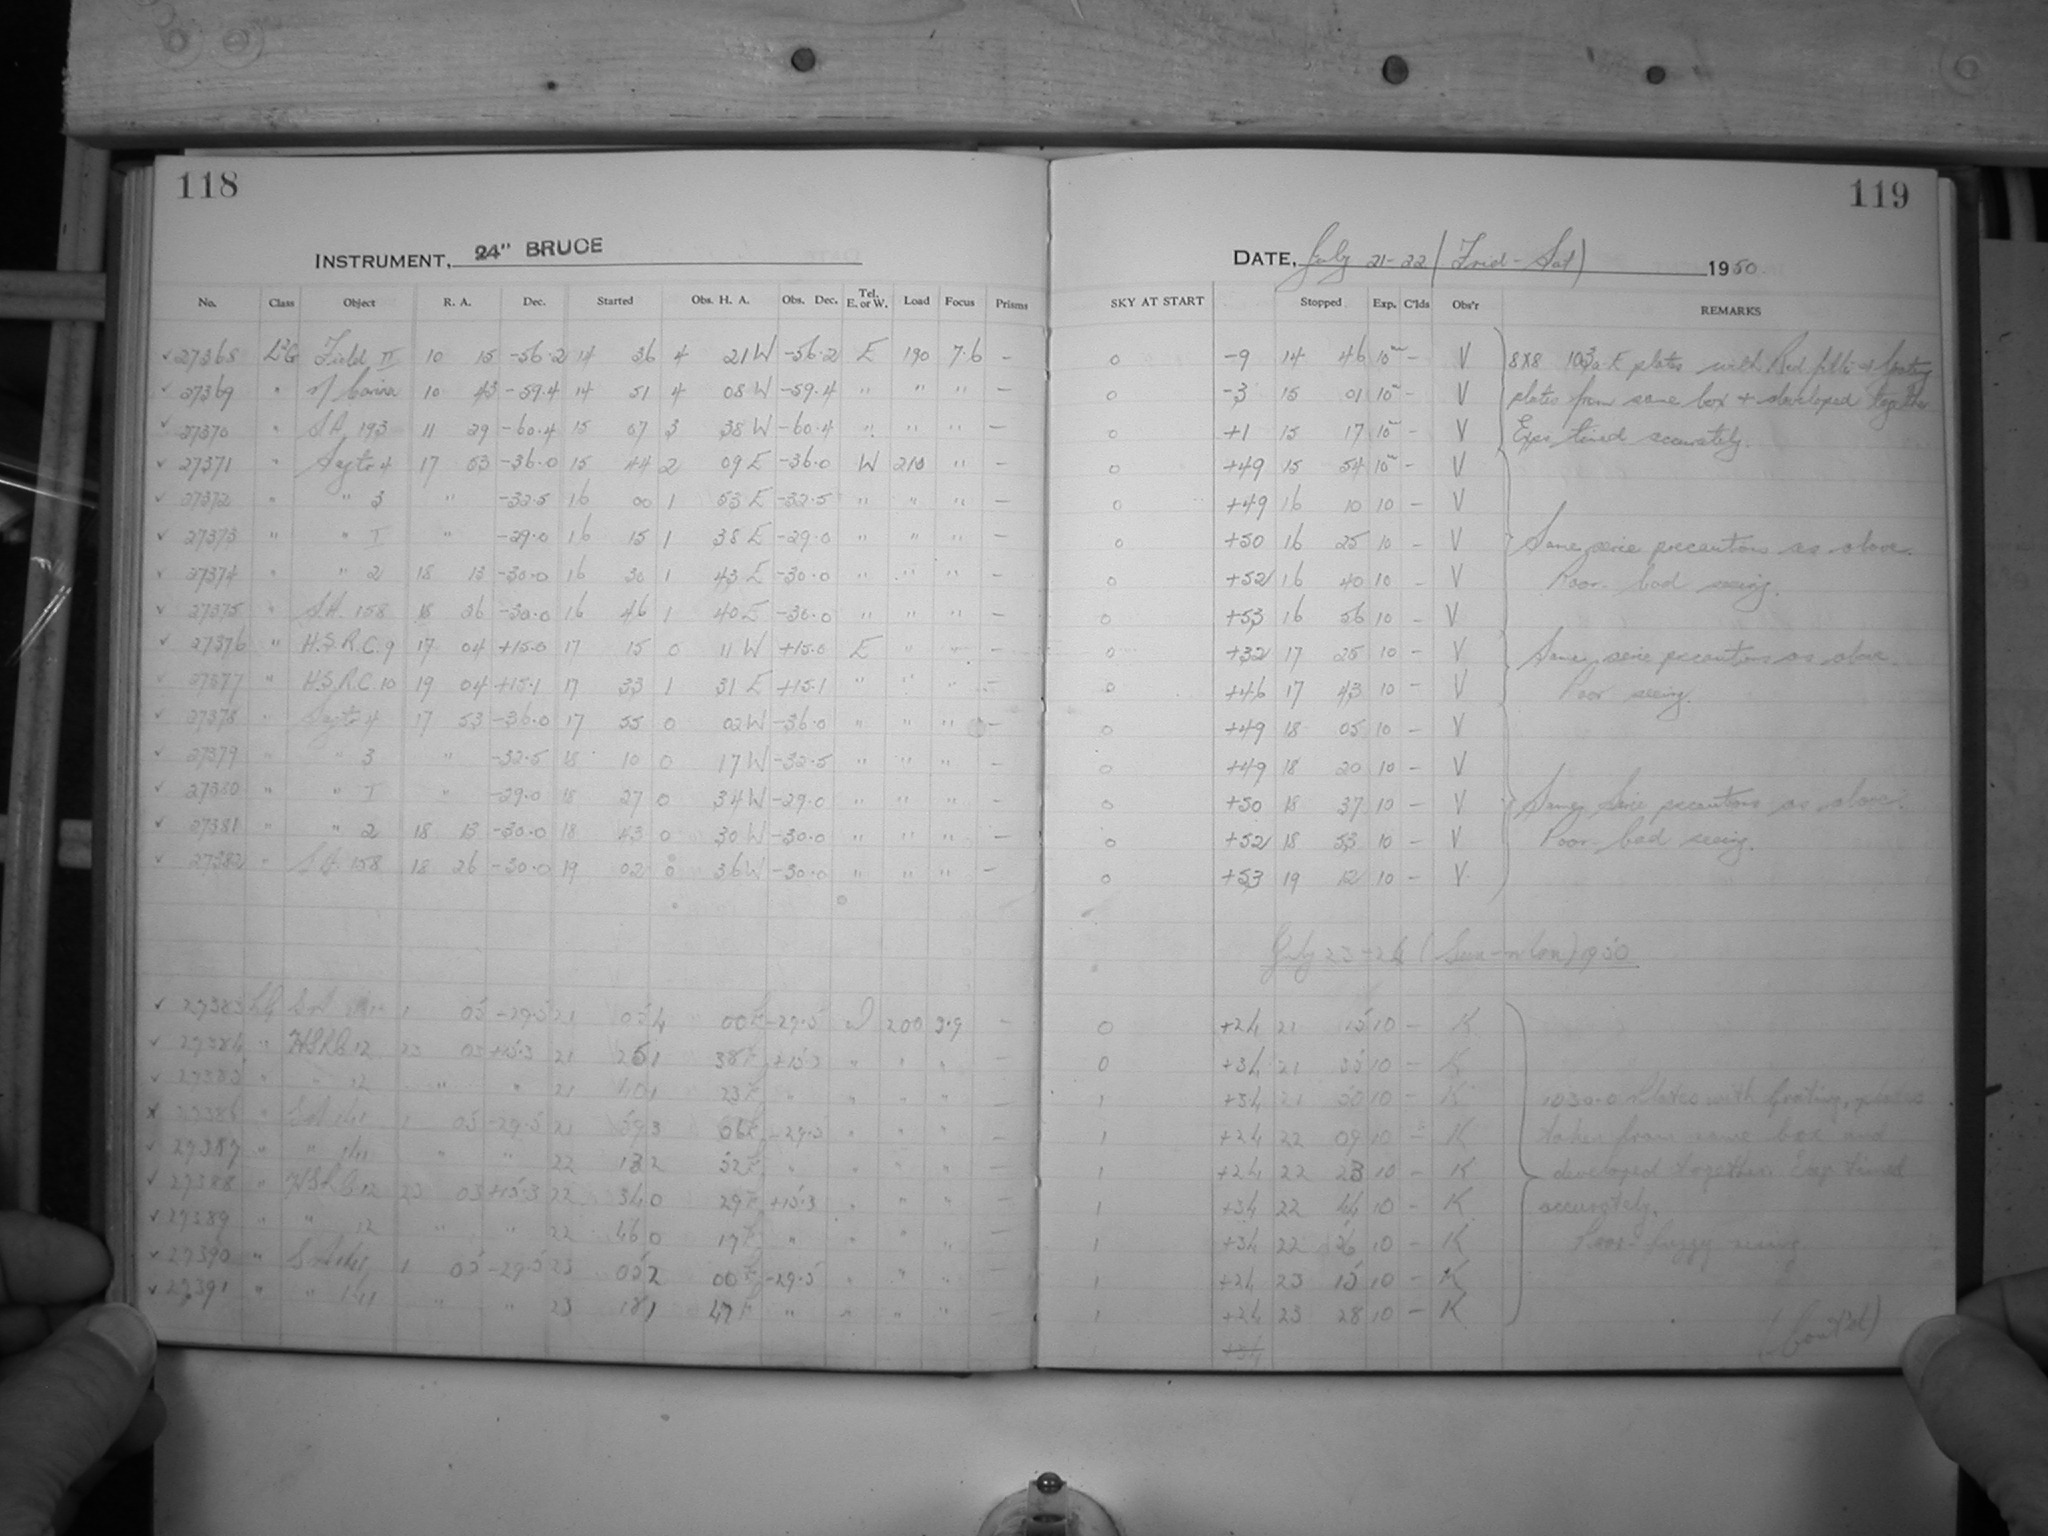 118
119
INSTRUMENT, 24" BRUCE
DATE, July 21-22 (Frid-Sat) 1950
No. Class Object R. A. Dec. Started Obs. H. A. Obs. Dec. Tel. E. or W. Load Focus Prisms SKY AT START Stopped Exp. C'lds Obs'r REMARKS
27368 Field II 10 15 -56.2 14 36 4 21 W -56.2 E 190 7.6 — 0 -9 14 46 10 — V 8x8 103a-E plates with Red filter +
27369 " η Carina 10 43 -59.4 14 51 4 08 W -59.4 " " " — 0 -3 15 01 10 — V plates from same box + developed together
27370 " S.A. 193 11 29 -60.4 15 07 3 38 W -60.4 " " " — 0 +1 15 17 10 — V Exps timed accurately.
27371 " Sagtr 4 17 53 -36.0 15 44 2 09 E -36.0 W 210 " — 0 +49 15 54 10 — V
27372 " " 3 " -32.5 16 00 1 53 E -32.5 " " " — 0 +49 16 10 10 — V
27373 " " I " -29.0 16 15 1 38 E -29.0 " " " — 0 +50 16 25 10 — V precautions as above.
27374 " " 2 18 13 -30.0 16 30 1 43 E -30.0 " " " — 0 +52 16 40 10 — V Poor - bad seeing.
27375 " S.A. 158 18 26 -30.0 16 46 1 40 E -30.0 " " " — 0 +53 16 56 10 — V
27376 " H.S.R.C. 9 17 04 +15.0 17 15 0 11 W +15.0 E " " — 0 +32 17 25 10 — V precautions as above.
27377 " H.S.R.C. 10 19 04 +15.1 17 33 1 31 E +15.1 " " " — 0 +46 17 43 10 — V Poor seeing.
27378 " Sagtr 4 17 53 -36.0 17 55 0 02 W -36.0 " " " — 0 +49 18 05 10 — V
27379 " " 3 " -32.5 18 10 0 17 W -32.5 " " " — 0 +49 18 20 10 — V
27380 " " I " -29.0 18 27 0 34 W -29.0 " " " — 0 +50 18 37 10 — V precautions as above.
27381 " " 2 18 13 -30.0 18 43 0 30 W -30.0 " " " — 0 +52 18 53 10 — V Poor - bad seeing.
27382 " S.A. 158 18 26 -30.0 19 02 0 36 W -30.0 " " " — 0 +53 19 12 10 — V
July 23-24 (Sun-Mon) 1950
27383 1 05 -29.5 21 05 4 00 E -29.5 200 3.9 — 0 +24 21 15 10 — K
27384 " HSRC 12 23 03 +15.3 21 25 1 38 E +15.3 " " " — 0 +34 21 35 10 — K
27385 " " 12 " " 21 40 1 23 E " " " " — 1 +34 21 50 10 — K plates with Grating, plates
27386 " 1 05 -29.5 21 59 3 06 E -29.5 " " " — 1 +24 22 09 10 — K taken from same box and
27387 " " " " 22 13 2 52 E " " " " — 1 +24 22 23 10 — K developed together. Exp timed
27388 " HSRC 12 23 03 +15.3 22 34 0 29 E +15.3 " " " — 1 +34 22 44 10 — K accurately.
27389 " " 12 " " 22 46 0 17 E " " " " — 1 +34 22 56 10 — K Poor - fuzzy seeing
27390 " 1 05 -29.5 23 05 2 00 E -29.5 " " " — 1 +24 23 15 10 — K
27391 " " " " 23 18 1 47 E " " " " — 1 +24 23 28 10 — K
+34
(Cont'd)